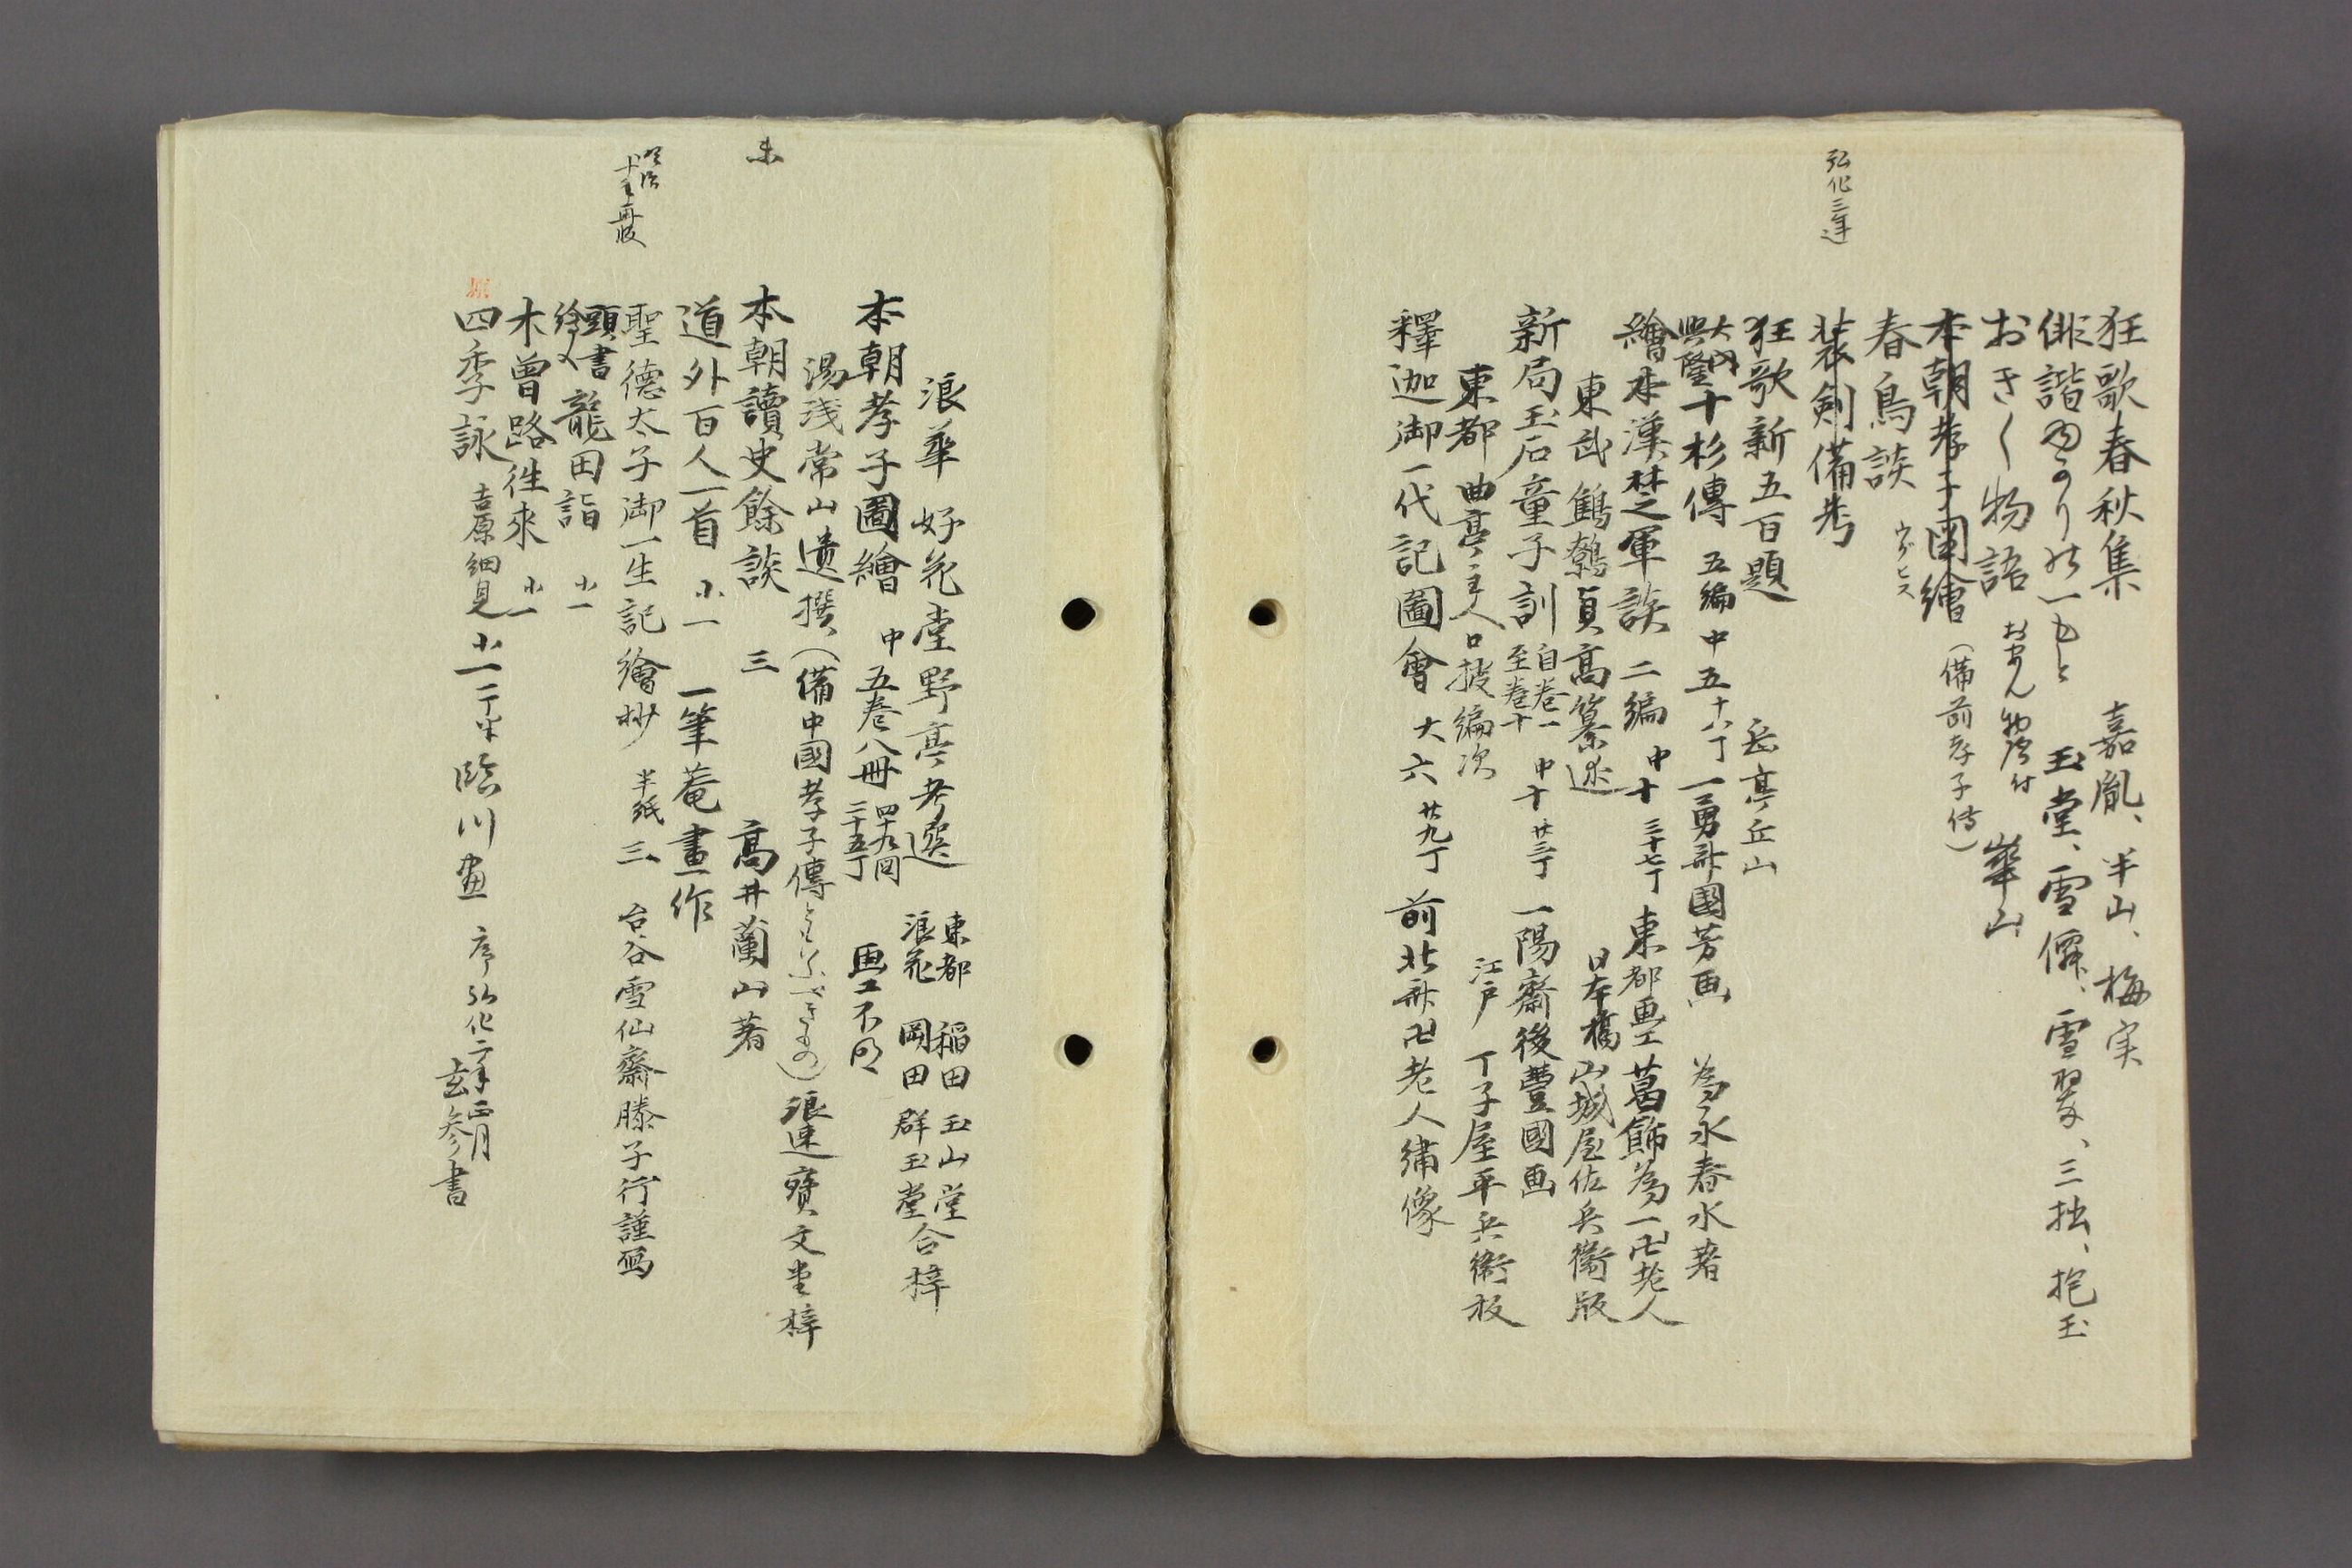 狂歌春秋集 嘉胤、半山、梅実
俳諧 一もと 玉堂、雪僊、雪翠、三拙、抱玉
おきく物語 おあん物語付 華山
本朝孝子圖繪（備前孝子傳）
春鳥談 ウグヒス
弘化三年
装剣備考
狂歌新五百題 岳亭丘山
大内興隆十杉傳 五編 中 五 十八丁 一勇斎國芳画 為永春水著
繪本漢楚軍談 二編 中 十 三十七丁 東都畫工 葛飾為一卍老人
東武 鶴鶉貞高纂述 日本橋 山城屋佐兵衞版
新局玉石童子訓 自巻一至巻十 中 十 廿三丁 一陽齋後豐國画
東都 曲亭主人口授編次 江戸 丁子屋平兵衞板
釋迦御一代記圖會 大 六 廿九丁 前北斎卍老人繡像
浪華 好花堂野亭考選 東都 稲田玉山堂 浪花 岡田群玉堂 合梓
本朝孝子圖繪 中 五巻八冊 画工不明
湯浅常山遺撰（備中國孝子傳） 寶文堂梓
未
本朝讀史餘談 三 高井蘭山著
道外百人一首 小一 一筆菴畫作
再版
聖德太子御一生記繪抄 半紙 三 谷雪仙齋滕子行謹寫
頭書繪入 龍田詣 小一
木曾路徃來 小一
四季詠 吉原細見 小一 臨川画 序弘化二年正月
玄参書